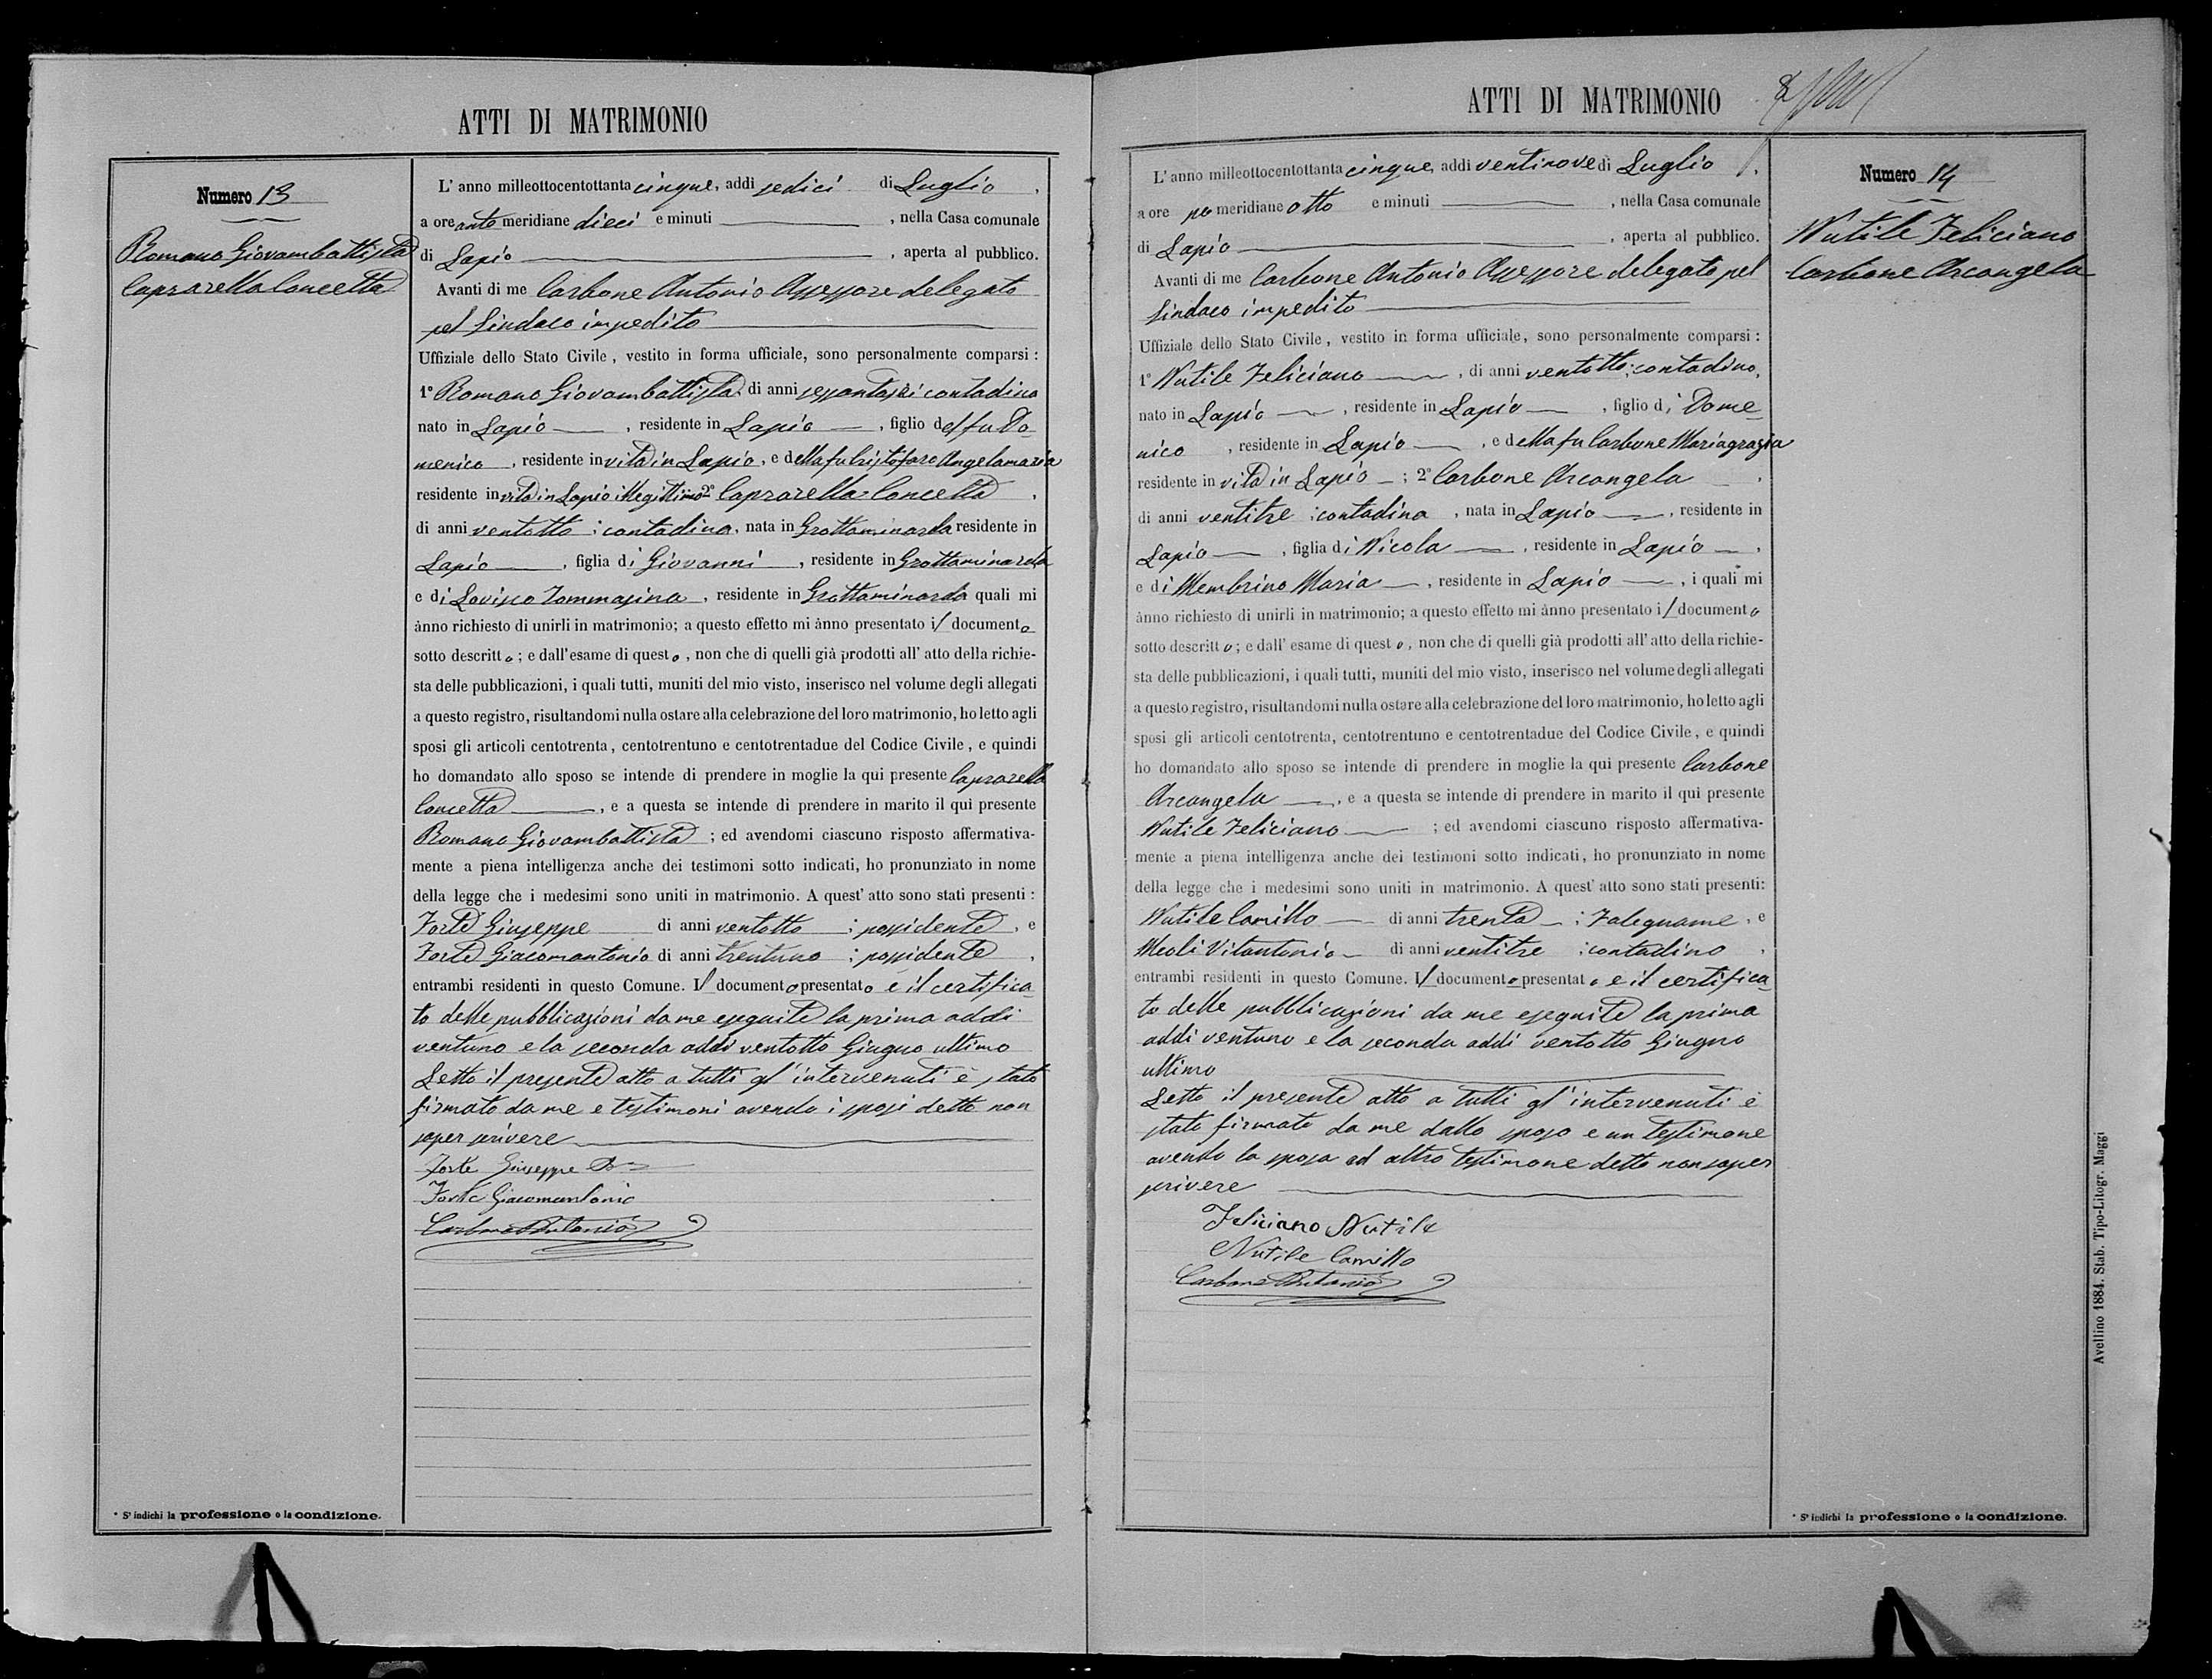 ATTI DI MATRIMONIO
Numero 13
Romano Giovambattista
Caprarella Concetta
L' anno milleottocentottanta cinque, addi sedici di Luglio,
a ore ante meridiane dieci e minuti , nella Casa comunale
di Lapio , aperta al pubblico.
Avanti di me Carbone Antonio Assessore delegato
pel Sindaco impedito
Uffiziale dello Stato Civile, vestito in forma ufficiale, sono personalmente comparsi :
1° Romano Giovambattista di anni sessantasei contadino
nato in Lapio , residente in Lapio , figlio del fu Do-
menico , residente in vita in Lapio, e della fu Cristofaro Angelamaria
residente in vita in Lapio illegittimo 2° Caprarella Concetta ,
di anni ventotto ; contadina, nata in Grottaminarda residente in
Lapio , figlia di Giovanni , residente in Grottaminarda
e di Lovisco Tommasina , residente in Grottaminarda quali mi
ànno richiesto di unirli in matrimonio; a questo effetto mi ànno presentato il documento
sotto descritto; e dall'esame di questo, non che di quelli già prodotti all' atto della richie-
sta delle pubblicazioni, i quali tutti, muniti del mio visto, inserisco nel volume degli allegati
a questo registro, risultandomi nulla ostare alla celebrazione del loro matrimonio, ho letto agli
sposi gli articoli centotrenta, centotrentuno e centotrentadue del Codice Civile, e quindi
ho domandato allo sposo se intende di prendere in moglie la qui presente Caprarella
Concetta , e a questa se intende di prendere in marito il qui presente
Romano Giovambattista ; ed avendomi ciascuno risposto affermativa-
mente a piena intelligenza anche dei testimoni sotto indicati, ho pronunziato in nome
della legge che i medesimi sono uniti in matrimonio. A quest' atto sono stati presenti :
Forte Giuseppe di anni ventotto ; possidente , e
Forte Giacomantonio di anni trentuno ; possidente ,
entrambi residenti in questo Comune. Il documento presentato è il certifica-
to delle pubblicazioni da me eseguite la prima addi
ventuno e la seconda addi ventotto Giugno ultimo
Letto il presente atto a tutti gl' intervenuti è stato
firmato da me e testimoni avendo i sposi detto non
saper scrivere
Forte Giuseppe
Forte Giacomantonio
Carbone Antonio
* S' indichi la professione o la condizione.
ATTI DI MATRIMONIO
Numero 14
Nutile Feliciano
Carbone Arcangela
L' anno milleottocentottanta cinque, addi ventinove di Luglio ,
a ore po meridiane otto e minuti , nella Casa comunale
di Lapio , aperta al pubblico.
Avanti di me Carbone Antonio Assessore delegato pel
Sindaco impedito
Uffiziale dello Stato Civile, vestito in forma ufficiale, sono personalmente comparsi :
1° Nutile Feliciano , di anni ventotto ; contadino,
nato in Lapio , residente in Lapio , figlio di Dome-
nico , residente in Lapio , e della fu Carbone Mariagrazia
residente in vita in Lapio ; 2° Carbone Arcangela ,
di anni ventitre ; contadina , nata in Lapio , residente in
Lapio , figlia di Nicola , residente in Lapio ,
e di Membrino Maria , residente in Lapio , i quali mi
ànno richiesto di unirli in matrimonio; a questo effetto mi ànno presentato il documento
sotto descritto; e dall' esame di questo, non che di quelli già prodotti all' atto della richie-
sta delle pubblicazioni, i quali tutti, muniti del mio visto, inserisco nel volume degli allegati
a questo registro, risultandomi nulla ostare alla celebrazione del loro matrimonio, ho letto agli
sposi gli articoli centotrenta, centotrentuno e centotrentadue del Codice Civile, e quindi
ho domandato allo sposo se intende di prendere in moglie la qui presente Carbone
Arcangela , e a questa se intende di prendere in marito il qui presente
Nutile Feliciano ; ed avendomi ciascuno risposto affermativa-
mente a piena intelligenza anche dei testimoni sotto indicati, ho pronunziato in nome
della legge che i medesimi sono uniti in matrimonio. A quest' atto sono stati presenti:
Nutile Camillo di anni trenta ; Falegname , e
Meoli Vitantonio di anni ventitre ; contadino ,
entrambi residenti in questo Comune. Il documento presentato è il certifica-
to delle pubblicazioni da me eseguite la prima
addi ventuno e la seconda addi ventotto Giugno
ultimo
Letto il presente atto a tutti gl' intervenuti è
stato firmato da me dallo sposo e un testimone
avendo la sposa ed altro testimone detto non saper
scrivere
Feliciano Nutile
Nutile Camillo
Carbone Antonio
* S' indichi la professione o la condizione.
Avellino 1884. Stab. Tipo-Litogr. Maggi